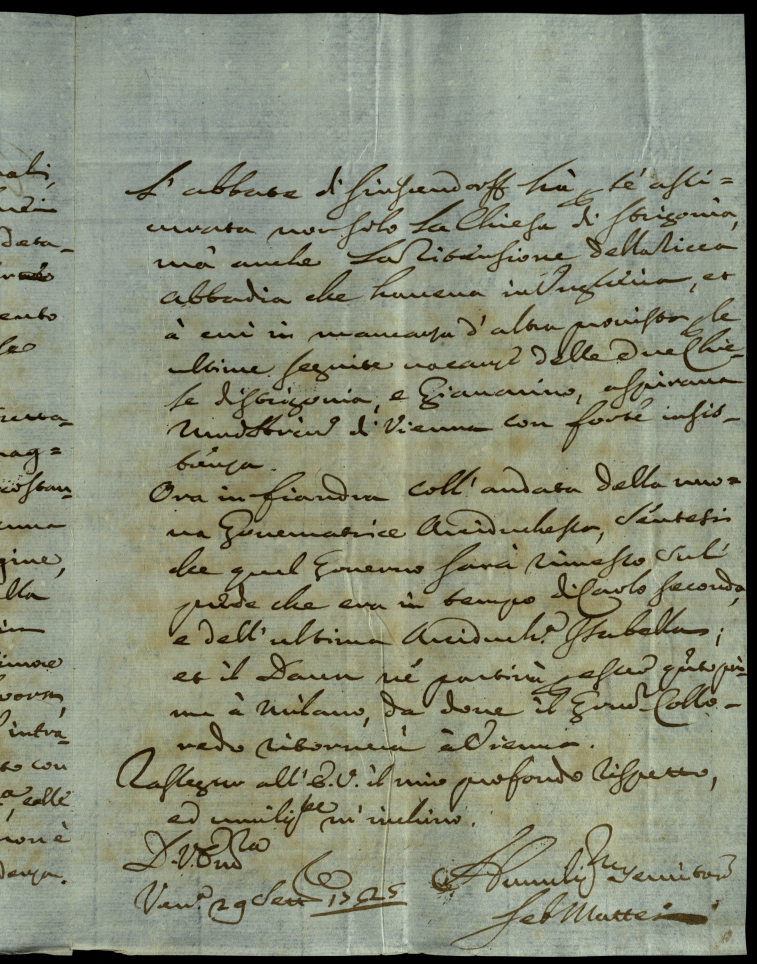 L' abbate di Sinsendorff hà p se' assi=
curata non solo la Chiesa di Strigonia,
mà anche la ritensione della ricca
abbadia che haueua in Ungheria, et
à cui in mancanza d'altra prouista, p le
ultime seguite uacanze delle due Chie-
se di Strigonia, e Giauarino, aspiraua
di Vienna con forte insis-
tenza.
Ora in fiandra coll' andata della nuo=
ua Gouernatrice Arciduchessa, sentesi
che quel Gouerno sarà rimesso sul
piede che era in tempo di Carlo secondo,
e dell' ultima Arciduch.a Isabella;
et il Daun ne' partirà p
à Milano, da doue il Collo-
redo ritornerà à Vienna.
Rassegno all' E.V. il mio profondo rispetto,
ed umiliss.te m' inchino.
D. V. Em.za
Ven.a 29 Sett 1725
Humiliss.
Seb Mattei
ali,
data-
ento
se
mag=
costan
gine,
lla
intra-
to con
non è
denza.